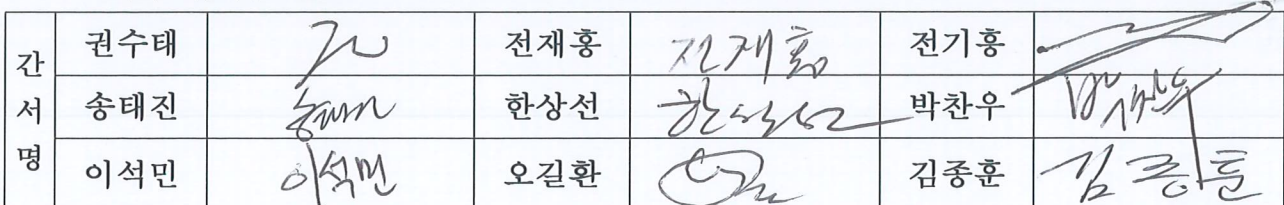 간서명
권수태 전재홍 전재홍 전기홍
송태진 송태진 한상선 한상선 박찬우 박찬우
이석민 이석민 오길환 김종훈 김종훈